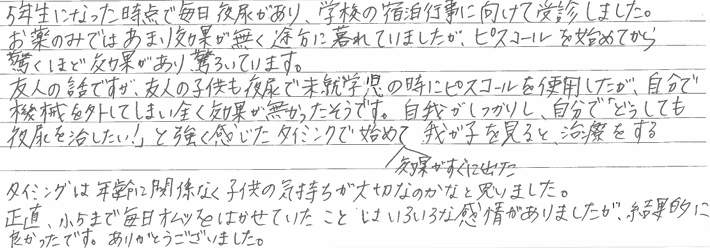 5年生になった時点で毎日夜尿があり、学校の宿泊行事に向けて受診しました。
お薬のみではあまり効果が無く途方に暮れていましたが、ピスコールを始めてから
驚くほど効果があり驚ろいています。
友人の話ですが、友人の子供も夜尿で未就学児の時にピスコールを使用したが、自分で
機械を外してしまい全く効果が無かったそうです。自我がしっかりし、自分で「どうしても
夜尿を治したい!」と強く感じたタイミングで始めて 我が子を見ると、治療をする
効果がすぐに出た
タイミングは年齢に関係なく子供の気持ちが大切なのかなと思いました。
正直、小5まで毎日オムツをはかせていたことはいろいろな感情がありましたが、結果的に
良かったです。ありがとうございました。